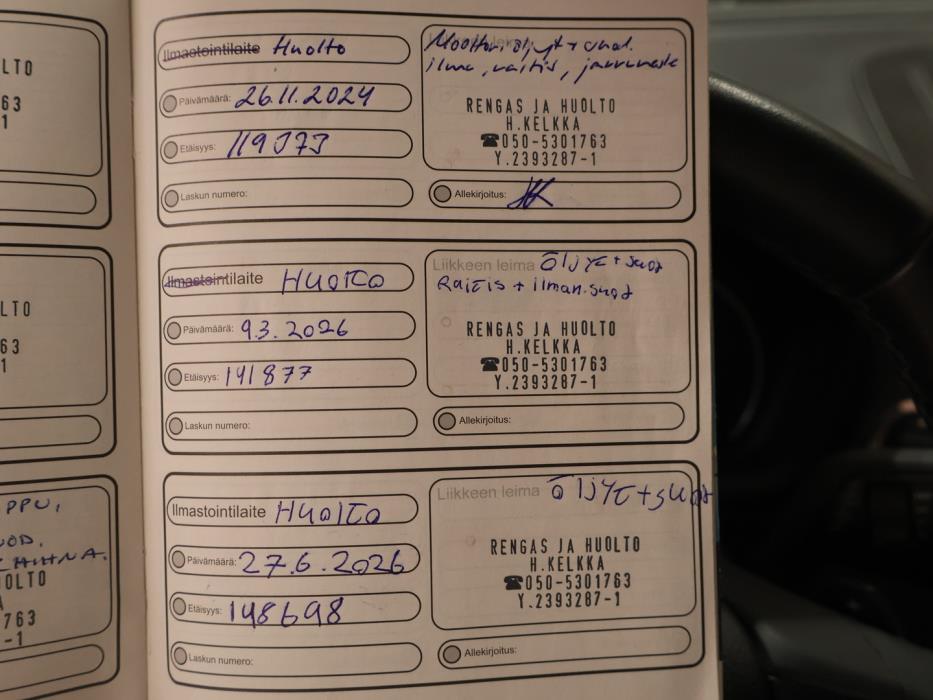 LTO
63
1
Ilmastointilaite Huolto
Päivämäärä: 26.11.2024
Etäisyys: 119373
Laskun numero:
Moottoriöljyt + suod.
ilma, raitis, jarruneste
RENGAS JA HUOLTO
H.KELKKA
☎050-5301763
Y.2393287-1
Allekirjoitus:
LTO
63
1
Ilmastointilaite HUOLTO
Päivämäärä: 9.3.2026
Etäisyys: 141877
Laskun numero:
Liikkeen leima ÖLJYT + SUOD
RAITIS + ilman.suod
RENGAS JA HUOLTO
H.KELKKA
☎050-5301763
Y.2393287-1
Allekirjoitus:
PPU,
UOD.
HIHNA.
OLTO
A
763
-1
Ilmastointilaite HUOLTO
Päivämäärä: 27.6.2026
Etäisyys: 148698
Laskun numero:
Liikkeen leima ÖLJYT + SUOD
RENGAS JA HUOLTO
H.KELKKA
☎050-5301763
Y.2393287-1
Allekirjoitus: